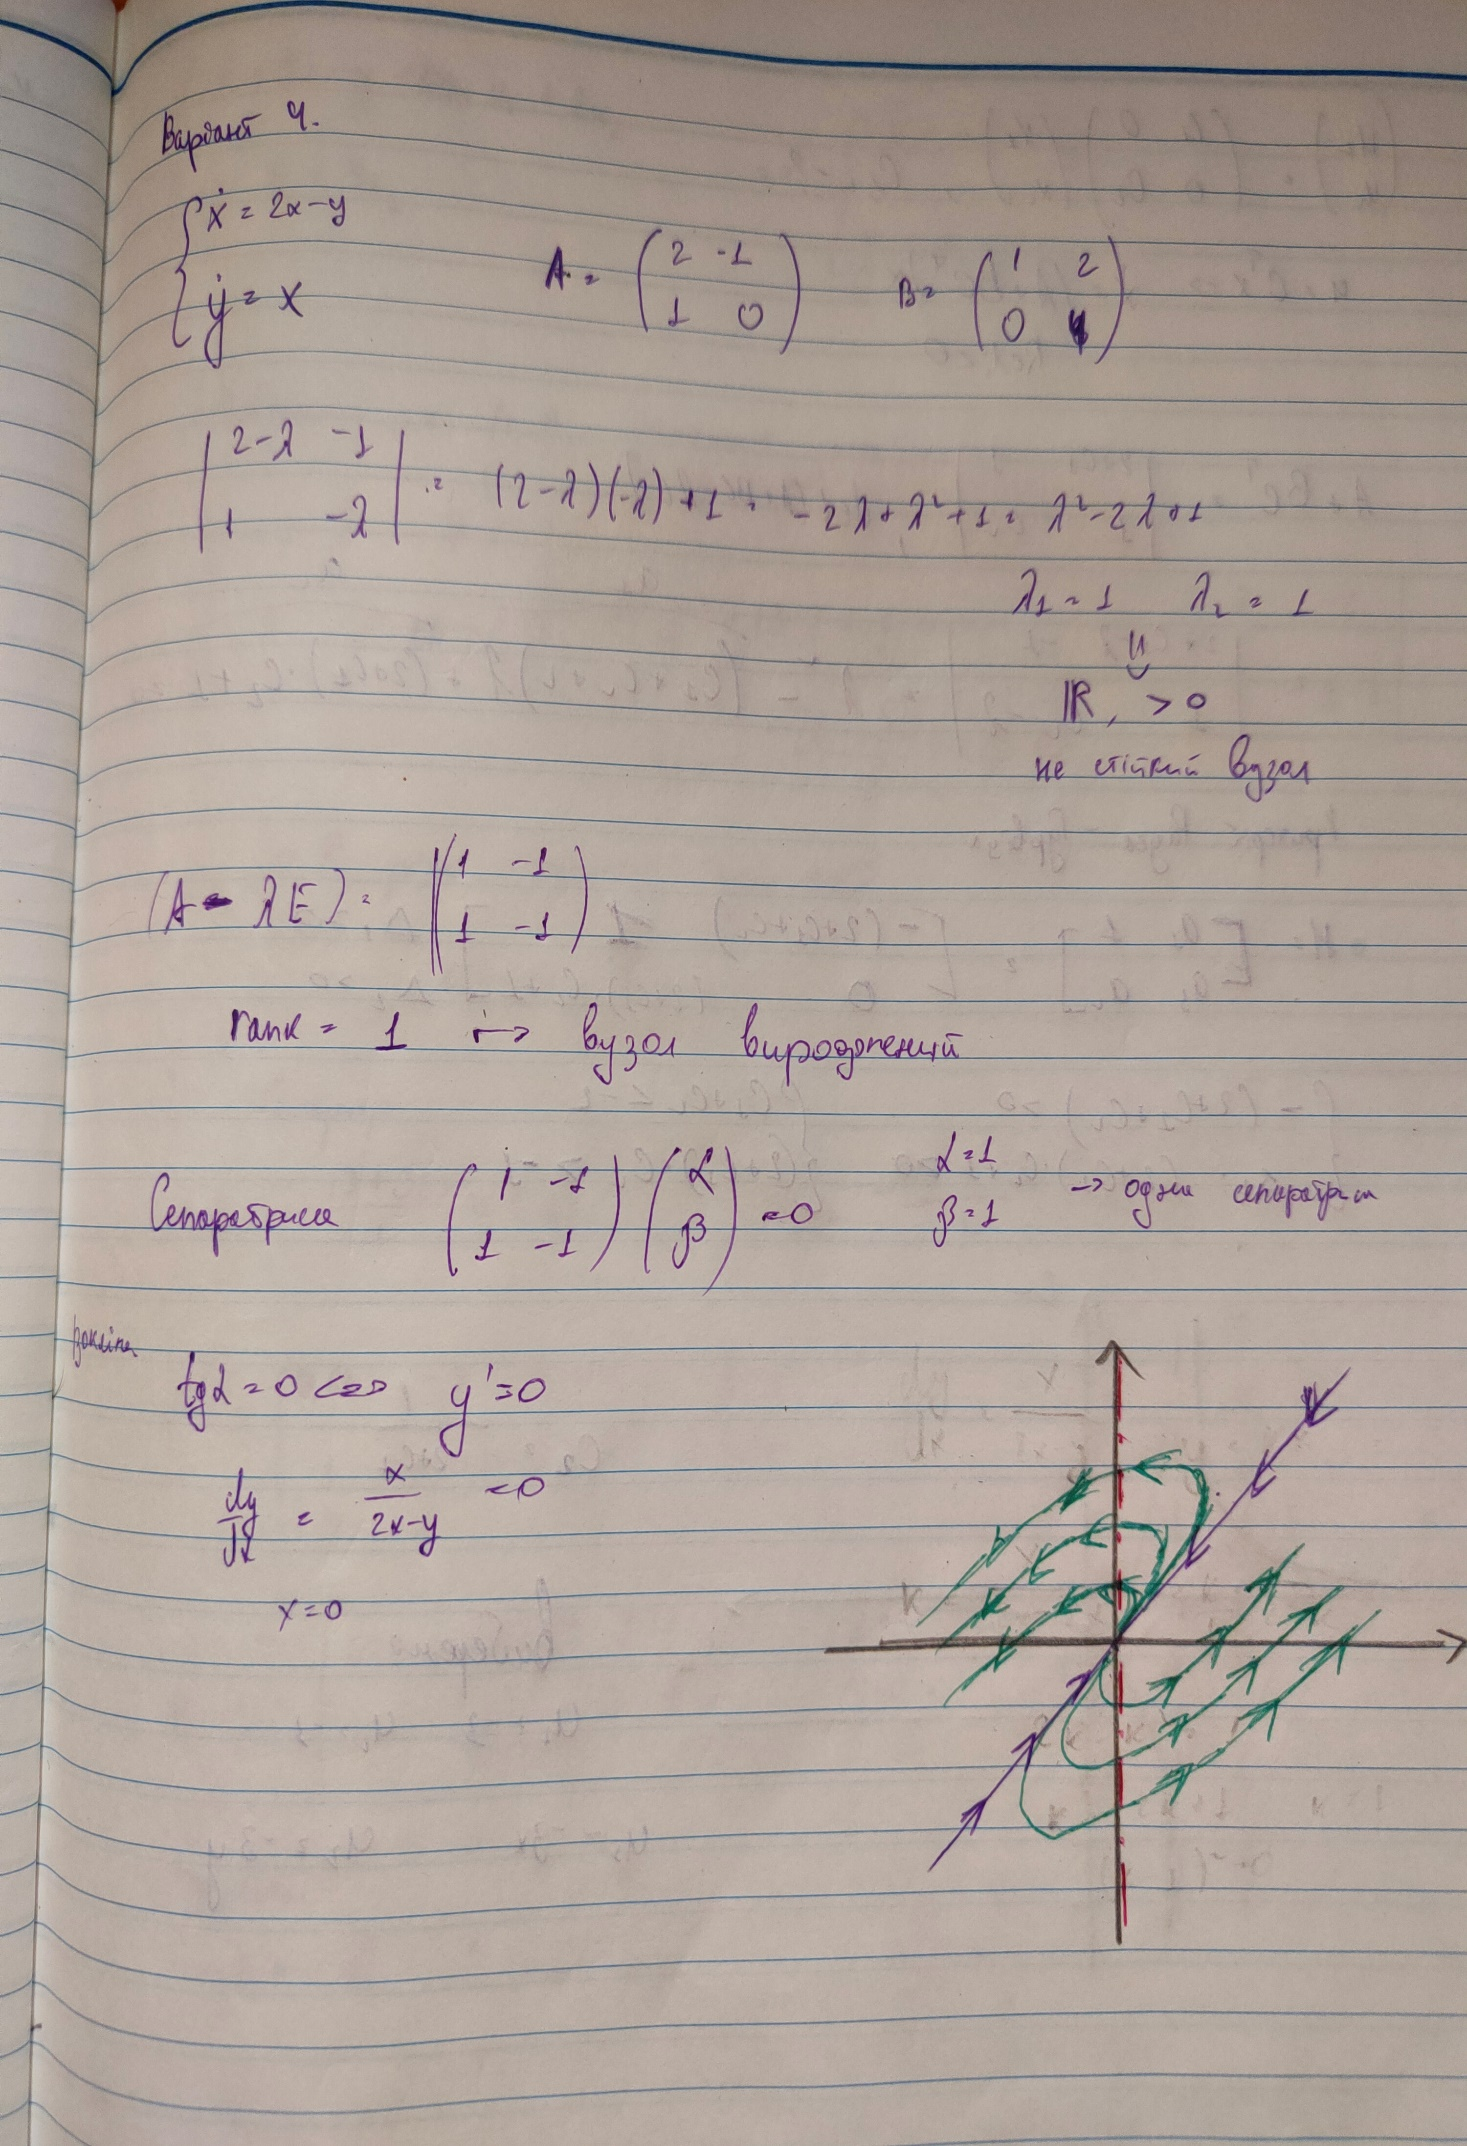 Варіант 4.
{ ẋ = 2x-y
ẏ = x
A = ( 2 -1
1 0 )
B = ( 1 2
0 )
| 2-λ -1
1 -λ | = (2-λ)(-λ)+1 = -2λ+λ²+1 = λ²-2λ+1
λ1 = 1 λ2 = 1
ℝ, > 0
не стійкий вузол
(A - λE) = ( 1 -1
1 -1 )
rank = 1 ↦ вузол вироджений
Сепаратриса ( 1 -1
1 -1 ) ( α
β ) = 0
α = 1
β = 1 → одна сепаратриса
tgα = 0 <=> y' = 0
dy/dx = x/(2x-y) = 0
x = 0